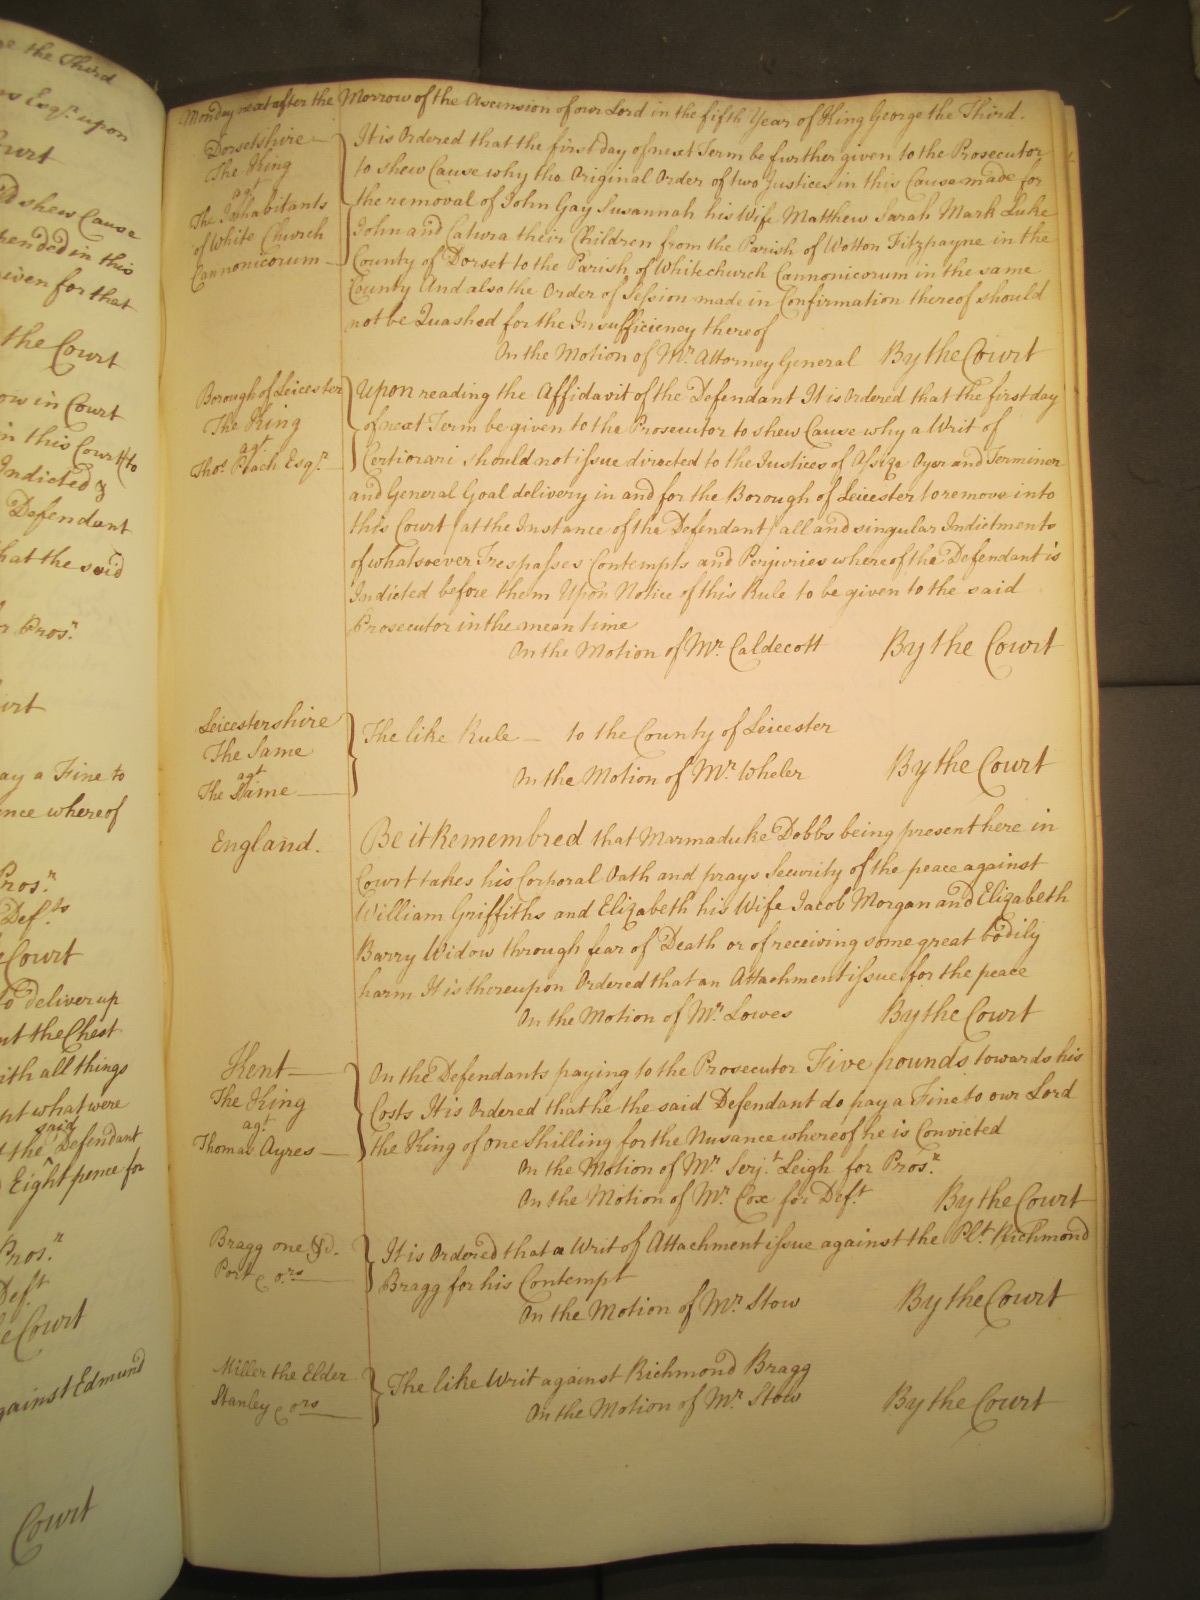 ge the Third
rs Esqr. upon
Court
shew Cause
pended in this
given for that
the Court
now in Court
in this Court to
Indicted &
Defendant
that the said
Pros.r
Court
pay a Fine to
whereof
Pros.r
Def.ts
Court
to deliver up
the Chest
with all things
what were
the said Defendant
Eight pence for
Pros.r
Def.t
Court
against Edmund
Court
Monday next after the Morrow of the Ascension of our Lord in the fifth Year of King George the Third.
Dorsetshire
The King
agt
The Inhabitants
of White Church
Cannonicorum
It is Ordered that the first day of next Term be further given to the Prosecutor
to shew Cause why the Original Order of two Justices in this Cause made for
the removal of John Gay Susannah his Wife Matthew Sarah Mark Luke
John and Catura their Children from the Parish of Wotton Fitzpayne in the
County of Dorset to the Parish of Whitechurch Cannonicorum in the same
County And also the Order of Session made in Confirmation thereof should
not be Quashed for the Insufficiency thereof
On the Motion of Mr. Attorney General By the Court
Borough of Leicester
The King
agt
Thos. Peach Esqr.
Upon reading the Affidavit of the Defendant It is Ordered that the first day
of next Term be given to the Prosecutor to shew Cause why a Writ of
Certiorari should not issue directed to the Justices of Assize Oyer and Terminer
and General Goal delivery in and for the Borough of Leicester to remove into
this Court (at the Instance of the Defendant) all and singular Indictments
of whatsoever Trespasses Contempts and Perjuries whereof the Defendant is
Indicted before them Upon Notice of this Rule to be given to the said
Prosecutor in the mean time
On the Motion of Mr. Caldecott By the Court
Leicestershire
The Same
agt
The Same
The like Rule — to the County of Leicester
On the Motion of Mr. Wheler By the Court
England.
Be it Remembred that Marmaduke Dobbs being present here in
Court takes his Corporal Oath and prays Security of the peace against
William Griffiths and Elizabeth his Wife Jacob Morgan and Elizabeth
Barry Widow through fear of Death or of receiving some great bodily
harm It is thereupon Ordered that an Attachment issue for the peace
On the Motion of Mr. Lowes By the Court
Kent
The King
agt
Thomas Ayres
On the Defendants paying to the Prosecutor Five pounds towards his
Costs It is Ordered that he the said Defendant do pay a Fine to our Lord
the King of one Shilling for the Nusance whereof he is Convicted
On the Motion of Mr. Serjt. Leigh for Pros.r
On the Motion of Mr. Cox for Def.t By the Court
Bragg one &c.
Port & ors
It is Ordered that a Writ of Attachment issue against the Pl.t Richmond
Bragg for his Contempt
On the Motion of Mr. Stow By the Court
Miller the Elder
Stanley & ors
The like Writ against Richmond Bragg
On the Motion of Mr. Stow By the Court